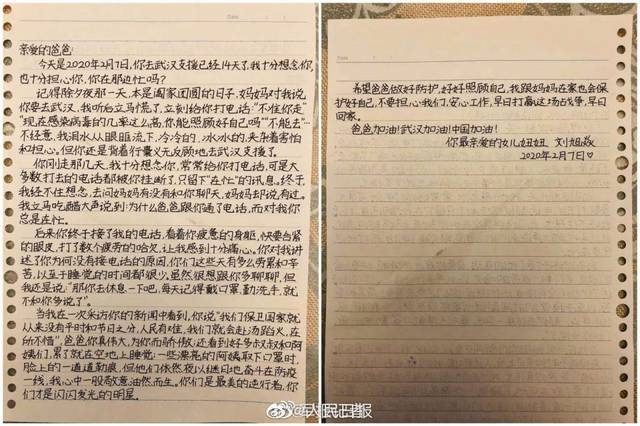 Date
亲爱的爸爸:
今天是2020年2月7日,你去武汉支援已经14天了,我十分想念你,
也十分担心你,你在那边忙吗?
记得除夕夜那一天,本是阖家团圆的日子,妈妈对我说
你要去武汉,我听后立马慌了,立刻给你打电话:"不准你走"
"现在感染病毒的几率这么高,你能照顾好自己吗""不能去"…
不经意,我泪水从眼眶流下,冷冷的,冰冰的,夹杂着害怕
和担心。但你还是背着行囊义无反顾地去武汉支援了。
你刚走那几天,我十分想念你,常常给你打电话,可是大
多数打去的电话都被你挂断了,只留下"在忙"的讯息。终于
我经不住想念,去问妈妈有没有和你聊天,妈妈却说有过。
我立马吃醋大声说到:为什么爸爸跟你通了电话,而对我你
总是在忙。
后来你终于接了我的电话,看着你疲惫的身躯,快要合紧
的眼皮,打了数个疲劳的哈欠,让我感到十分痛心。你对我讲
述了你为何没有接电话的原因,你们这些天有多么劳累和辛
苦,以至于睡觉的时间都很少。虽然很想跟你多聊聊,但
我还是说:"那你去休息一下吧,每天记得戴口罩,勤洗手,就
不和你多说了"。
当我在一次采访你的新闻中看到,你说"我们保卫国家就
从来没有平时和节日之分,人民有难,我们就会赴汤蹈义,在
所不惜",爸爸你真伟大,为你而骄傲;还看到好多叔叔和阿
姨们,累了就在空地上睡觉;一些漂亮的阿姨取下口罩时,
脸上的一道道勒痕,但他们依然夜以继日地奋斗在防疫
一线,我心中一股敬意油然而生。你们是最美的逆行者,你
们才是闪闪发光的明星。
Date
希望爸爸做好防护,好好照顾自己,我跟妈妈在家也会保
护好自己,不要担心我们,安心工作,早日打赢这场战争,早日
回家。
爸爸加油!武汉加油!中国加油!
你最亲爱的女儿妞妞 刘旭焱
2020年2月7日♡
@军人民日报